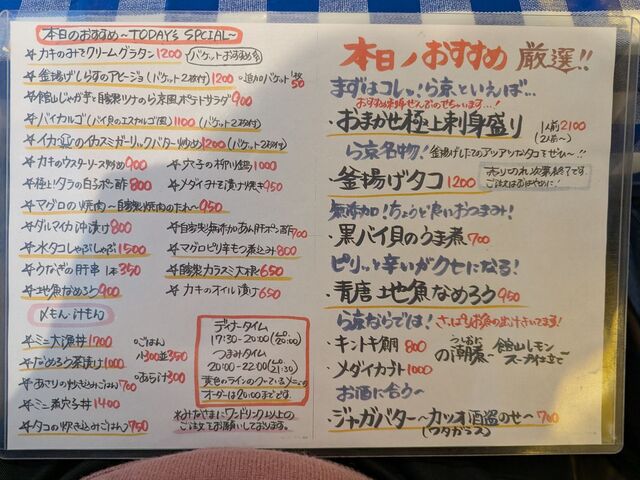 本日のおすすめ〜TODAY's SPCIAL〜
☆カキのみそクリームグラタン 1200 バケットおすすめ
☆釜揚げしらすのアヒージョ(バケット2枚付) 1200 ※追加バケット1枚50
☆館山じゃが芋と自家製ツナのら京風ポテトサラダ 900
☆バイカルゴ(バイ貝のエスカルゴ風) 1100 (バケット2枚付)
☆イカのイカスミガーリックバター炒め 1200 (バケット2枚付)
☆カキのウスターソース炒め 900
☆穴子の柳川鍋 1000
☆極上!タラの白子ポン酢 800
☆メダイみそ漬け焼き 950
☆マグロの焼肉〜自家製焼肉のたれ〜 950
☆ダルマイカ沖漬け 800
☆自家製無添加あん肝ポン酢 700
☆水タコしゃぶしゃぶ 1500
☆マグロピリ辛もつ煮込み 800
☆うなぎの肝串 1本350
☆自家製カラスミ大根 650
☆地魚なめろう 900
☆カキのオイル漬け 650
〆もん 汁もん
☆ミニ大漁丼 1700
☆なめろう茶漬け 1000
☆あさりの炊き込みごはん 700
☆ミニ煮穴子丼 1400
☆タコの炊き込みごはん 750
・ごはん
小300 並350
・あら汁 300
ディナータイム
17:30-20:00 (L.o 20:00)
つまみタイム
20:00-22:00 (L.o 21:30)
黄色のラインのひいているメニューの
オーダーは20:00までです。
※みなさまにワンドリンク以上の
ご注文をお願いしております。
本日ノおすすめ 厳選!!
まずはコレッ!ら京といえば…
おすすめ鮮魚ぜんぶのせちゃいます…!
・おまかせ極上刺身盛り 1人前2100
(2人前〜)
ら京名物! 釜揚げしたてのアツアツなタコをぜひ〜!!
・釜揚げタコ 1200
売り切れ次第終了です。
ご注文はお早めに!
無添加!ちょうど良いおつまみ!
・黒バイ貝のうま煮 700
ピリッと辛いがクセになる!
・青唐地魚なめろう 950
ら京ならでは! さっぱりお魚の出汁きいてます!
・キントキ鯛 800
・メダイカブト 1000
の潮煮〜館山レモンスープ仕立て〜
うしおに
お酒に合う〜
・ジャガバター〜カツオ酒盗のせ〜 700
(ワタガラス)